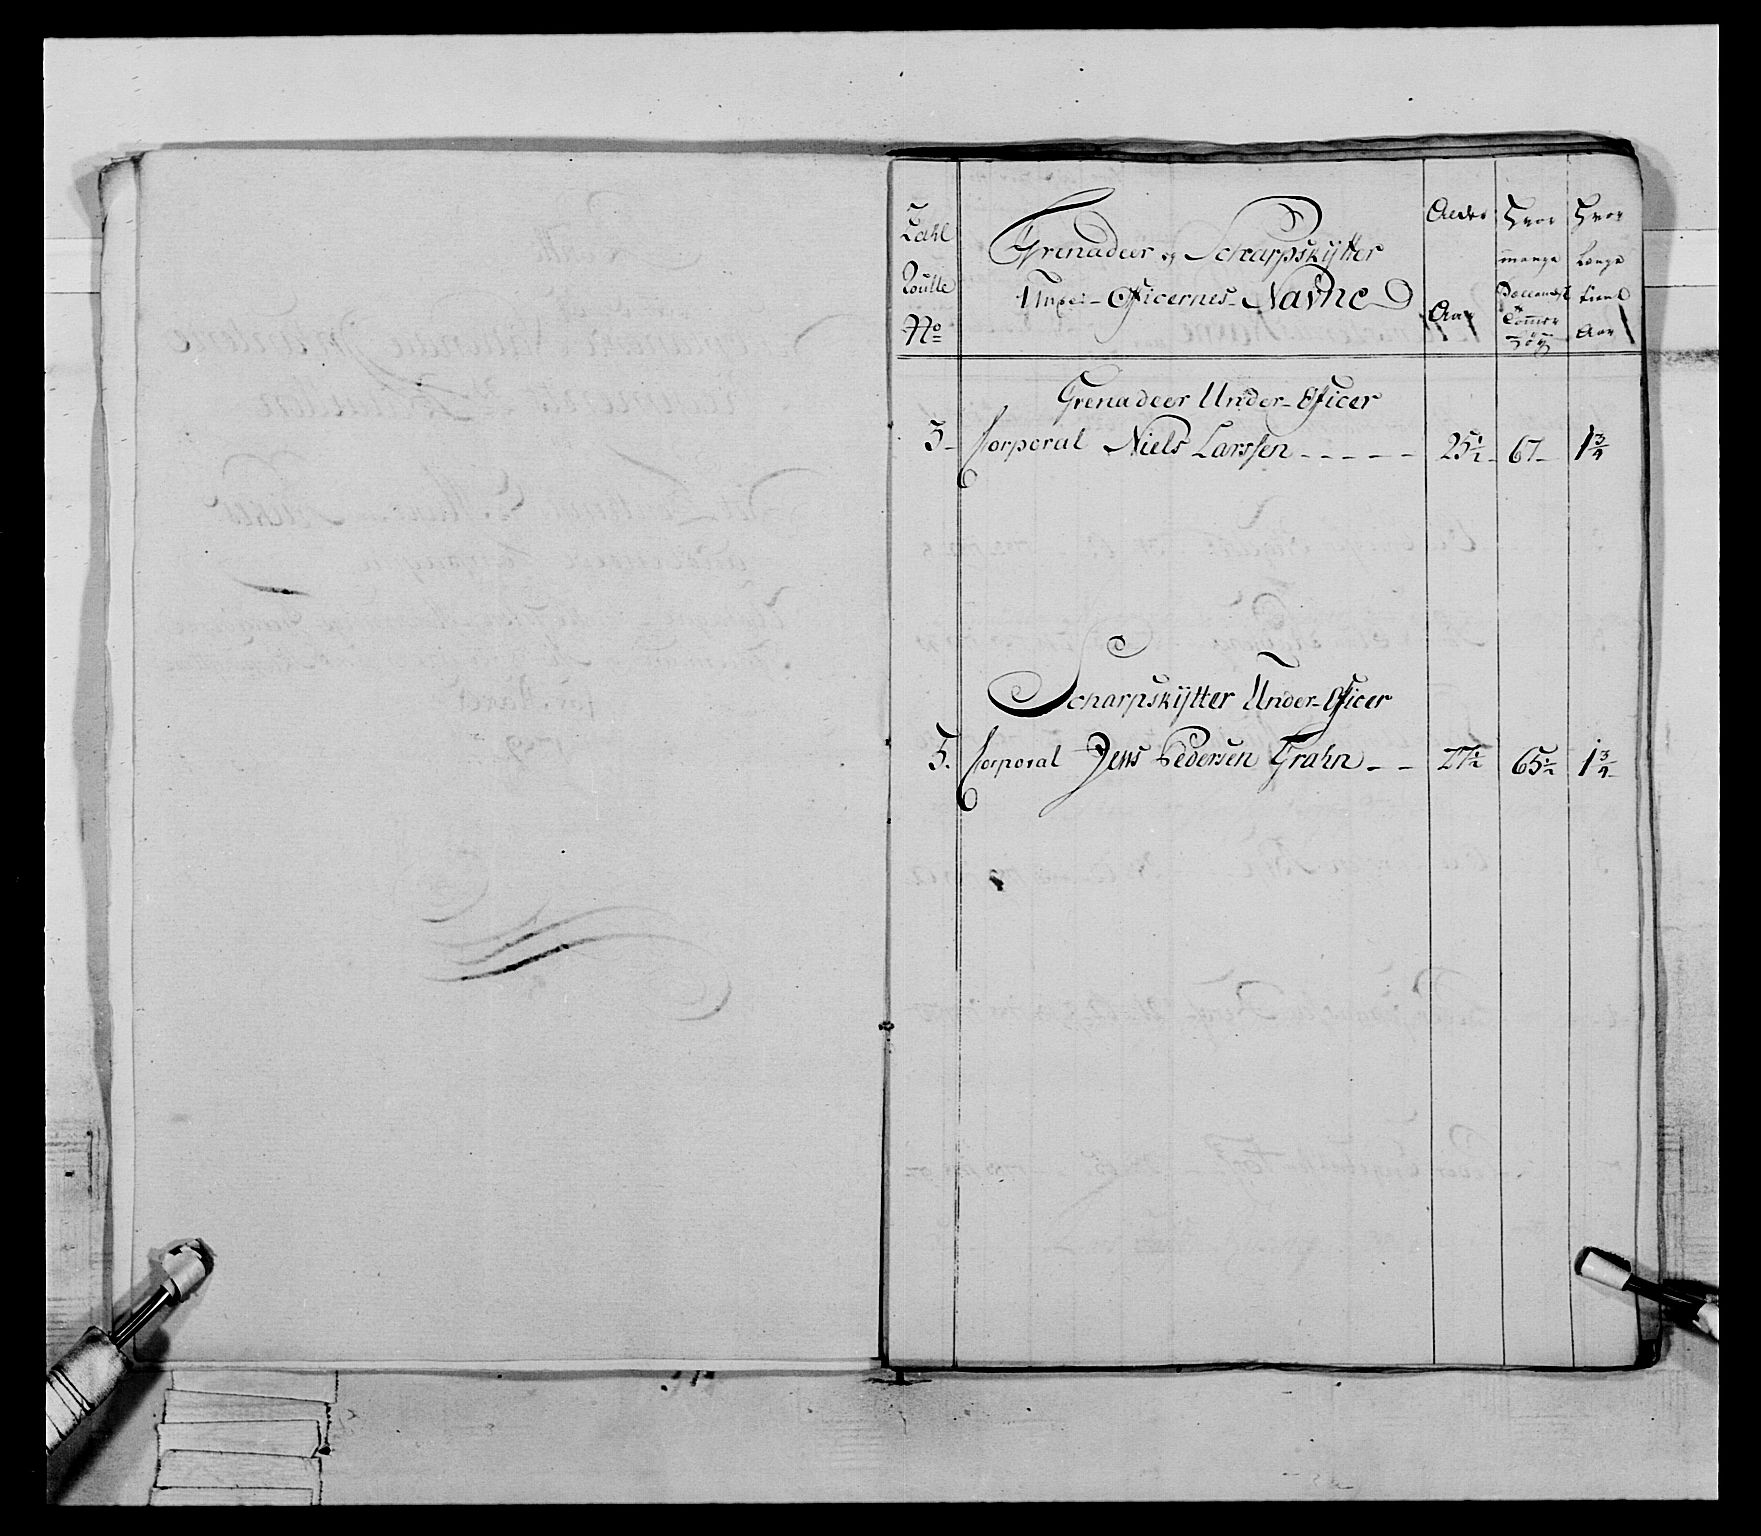 Tahl Roulle No
Grenadeer og Scharpskÿtter
Under-Officernes Navne
Alder Aar
Hvor mange Tommer Höÿ
Hvor Længe tient Aar
Grenadeer Under-Officer
3 - Corporal Niels Larssen - - - - - 25½ - 67 - 1¾
Scharpskÿtter Under-Officer
5. Corporal Jens Pedersen Grahn - - 27½ 65½ 1¾ -